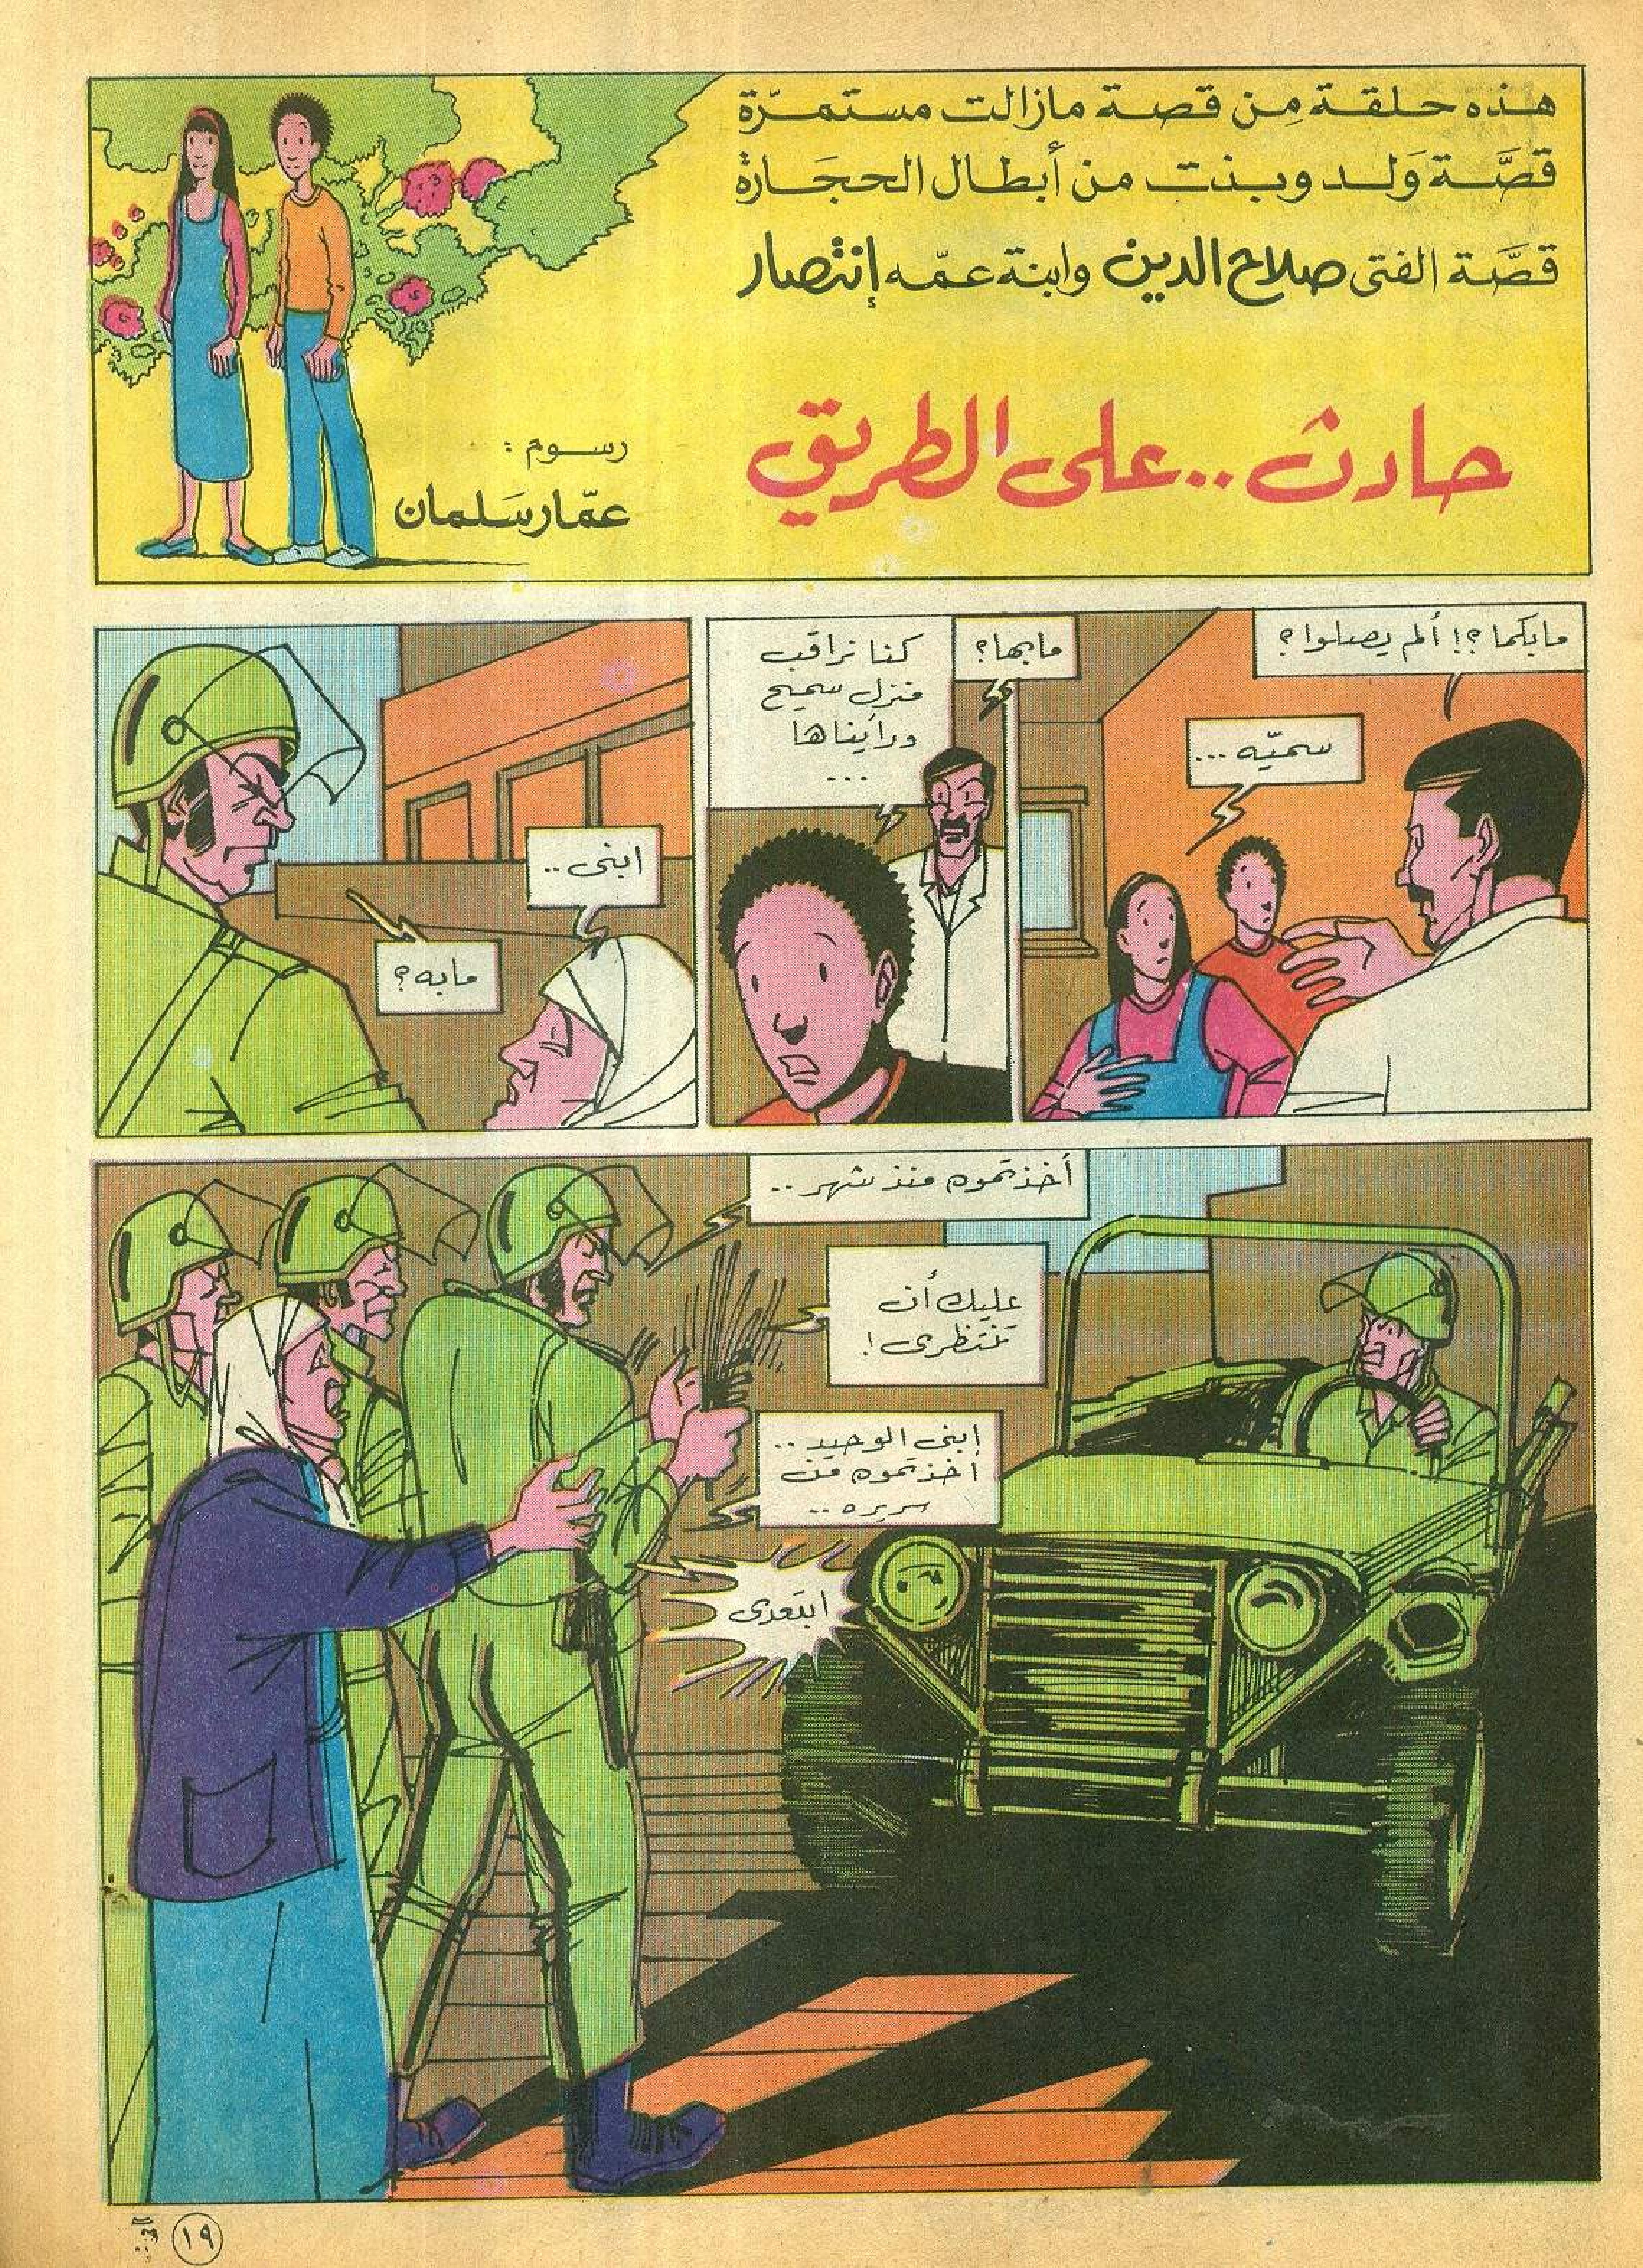 هذه حلقة مِن قصة مازالت مستمرّة
قصَّة وَلد وبنت من أبطال الحجَارة
قصَّة الفتى صلاح الدين وابنة عمّه إنتصار
حادث .. على الطريق
رسوم :
عمّار سَلمان
مابكما ؟! ألم يصلوا ؟
سميّه ...
مابها ؟
كنا نراقب
منزل سميح
ورأيناها
...
ابنى ..
مابه ؟
أخذتموه منذ شهر ..
عليك أن
تنتظرى !
ابنى الوحيد ..
أخذتموه من
سريره ..
ابتعدى
١٩